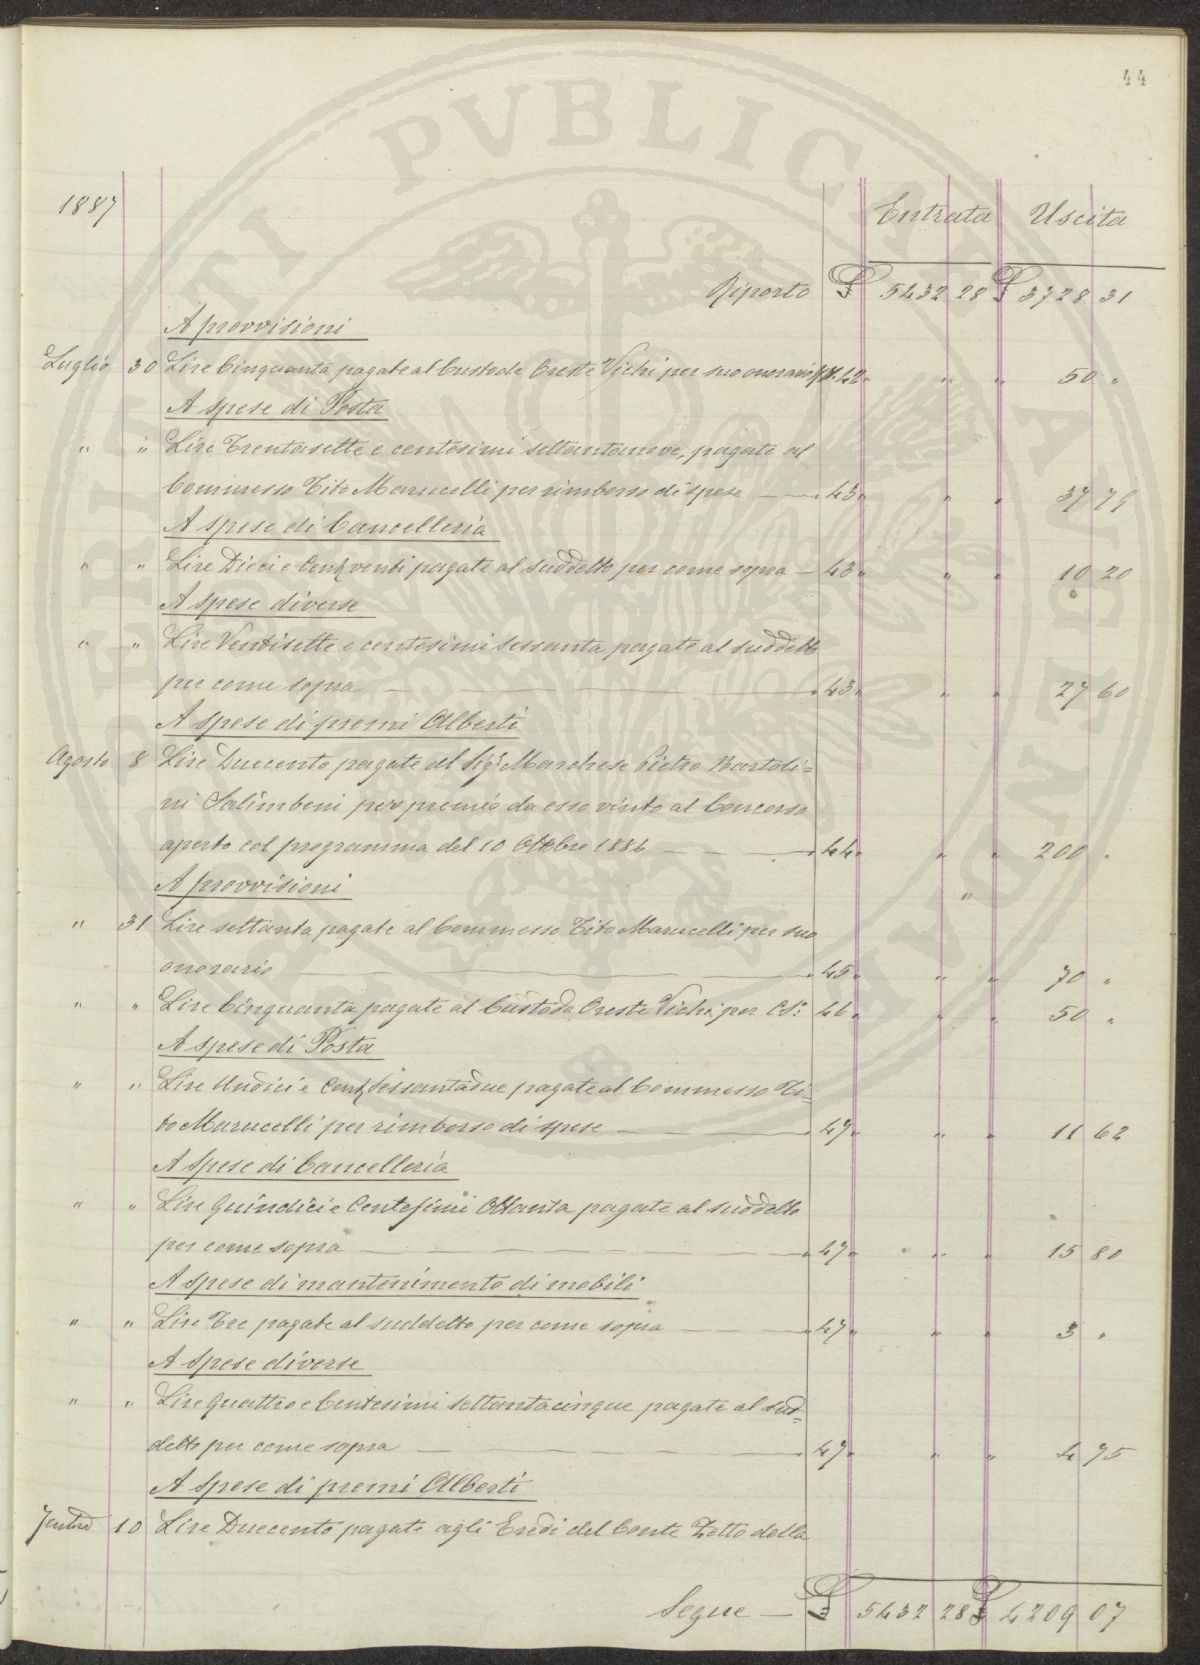 44
1887
Entrata Uscita
Riporto £ 5432 28 £ 3728 31
A provvisioni
Luglio 30 Lire Cinquanta pagate al Custode Oreste Vichi per suo onorario 42 " " 50 "
A spese di Posta
" " Lire Trentasette e centesimi settantanove, pagate al
Commesso Tito Marucelli per rimborso di spese — 43 " " 37 79
A spese di Cancelleria
" " Lire Dieci e Cent venti pagate al suddetto per come sopra — 43 " " 10 20
A spese diverse
" " Lire Ventisette e centesimi sessanta pagate al suddetto
per come sopra — 43 " " 27 60
A spese di premi Alberti
Agosto 8 Lire Duecento pagate al Sigr Marchese Pietro Bartoli=
ni Salimbeni per premio da esso vinto al Concorso
aperto col programma del 10 Ottobre 1886 — 44 " " 200 "
A provvisioni "
" 31 Lire settanta pagate al Commesso Tito Marucelli per suo
onorario — 45 " " 70 "
" " Lire Cinquanta pagate al Custode Oreste Vichi per C.S. 46 " " 50 "
A spese di Posta
" " Lire Undici e Cent sessantadue pagate al Commesso Ti=
to Marucelli per rimborso di spese — 47 " " 11 62
A spese di Cancelleria
" " Lire Quindici e Centesimi Ottanta pagate al suddetto
per come sopra — 47 " " 15 80
A spese di mantenimento di mobili
" " Lire Tre pagate al suddetto per come sopra — 47 " " 3 "
A spese diverse
" " Lire Quattro e Centesimi settantacinque pagate al sud=
detto per come sopra — 47 " " 4 75
A spese di premi Alberti
7embre 10 Lire Duecento pagate agli Eredi del Conte Zotto della
Segue — £ 5432 28 £ 4209 07